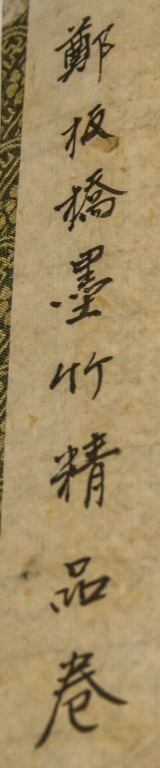 鄭板橋墨竹精品卷